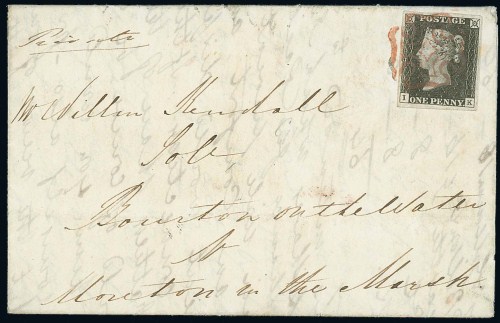 Private
POSTAGE
Mr Willm Kendall
I K
ONE PENNY
Solr
Bourton on the Water
Nr
Moreton in the Marsh.